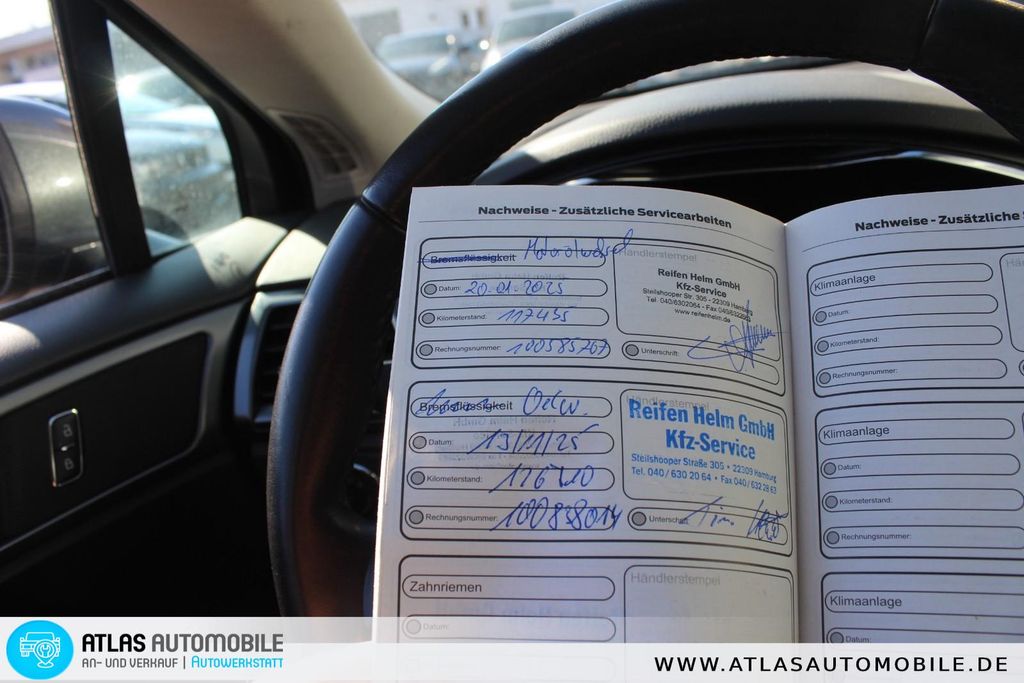 Nachweise - Zusätzliche Servicearbeiten
Bremsflüssigkeit Motorölwechsel
Händlerstempel
Reifen Helm GmbH
Kfz-Service
Steilshooper Str. 305 - 22309 Hamburg
Tel. 040/6302064 - Fax 040/6322863
www.reifenhelm.de
Datum: 20.01.2025
Kilometerstand: 117455
Rechnungsnummer: 100585767
Unterschrift:
Bremsflüssigkeit Oelw.
Händlerstempel
Reifen Helm GmbH
Kfz-Service
Steilshooper Straße 305 • 22309 Hamburg
Tel. 040 / 630 20 64 • Fax 040 / 632 28 63
Datum: 13/11/25
Kilometerstand:
Rechnungsnummer: 100838014
Unterschrift:
Zahnriemen
Händlerstempel
Datum:
Nachweise - Zusätzliche S
Klimaanlage
Hä
Datum:
Kilometerstand:
Rechnungsnummer:
Klimaanlage
Datum:
Kilometerstand:
Rechnungsnummer:
Klimaanlage
Datum:
ATLAS AUTOMOBILE
AN- UND VERKAUF | AUTOWERKSTATT
WWW.ATLASAUTOMOBILE.DE